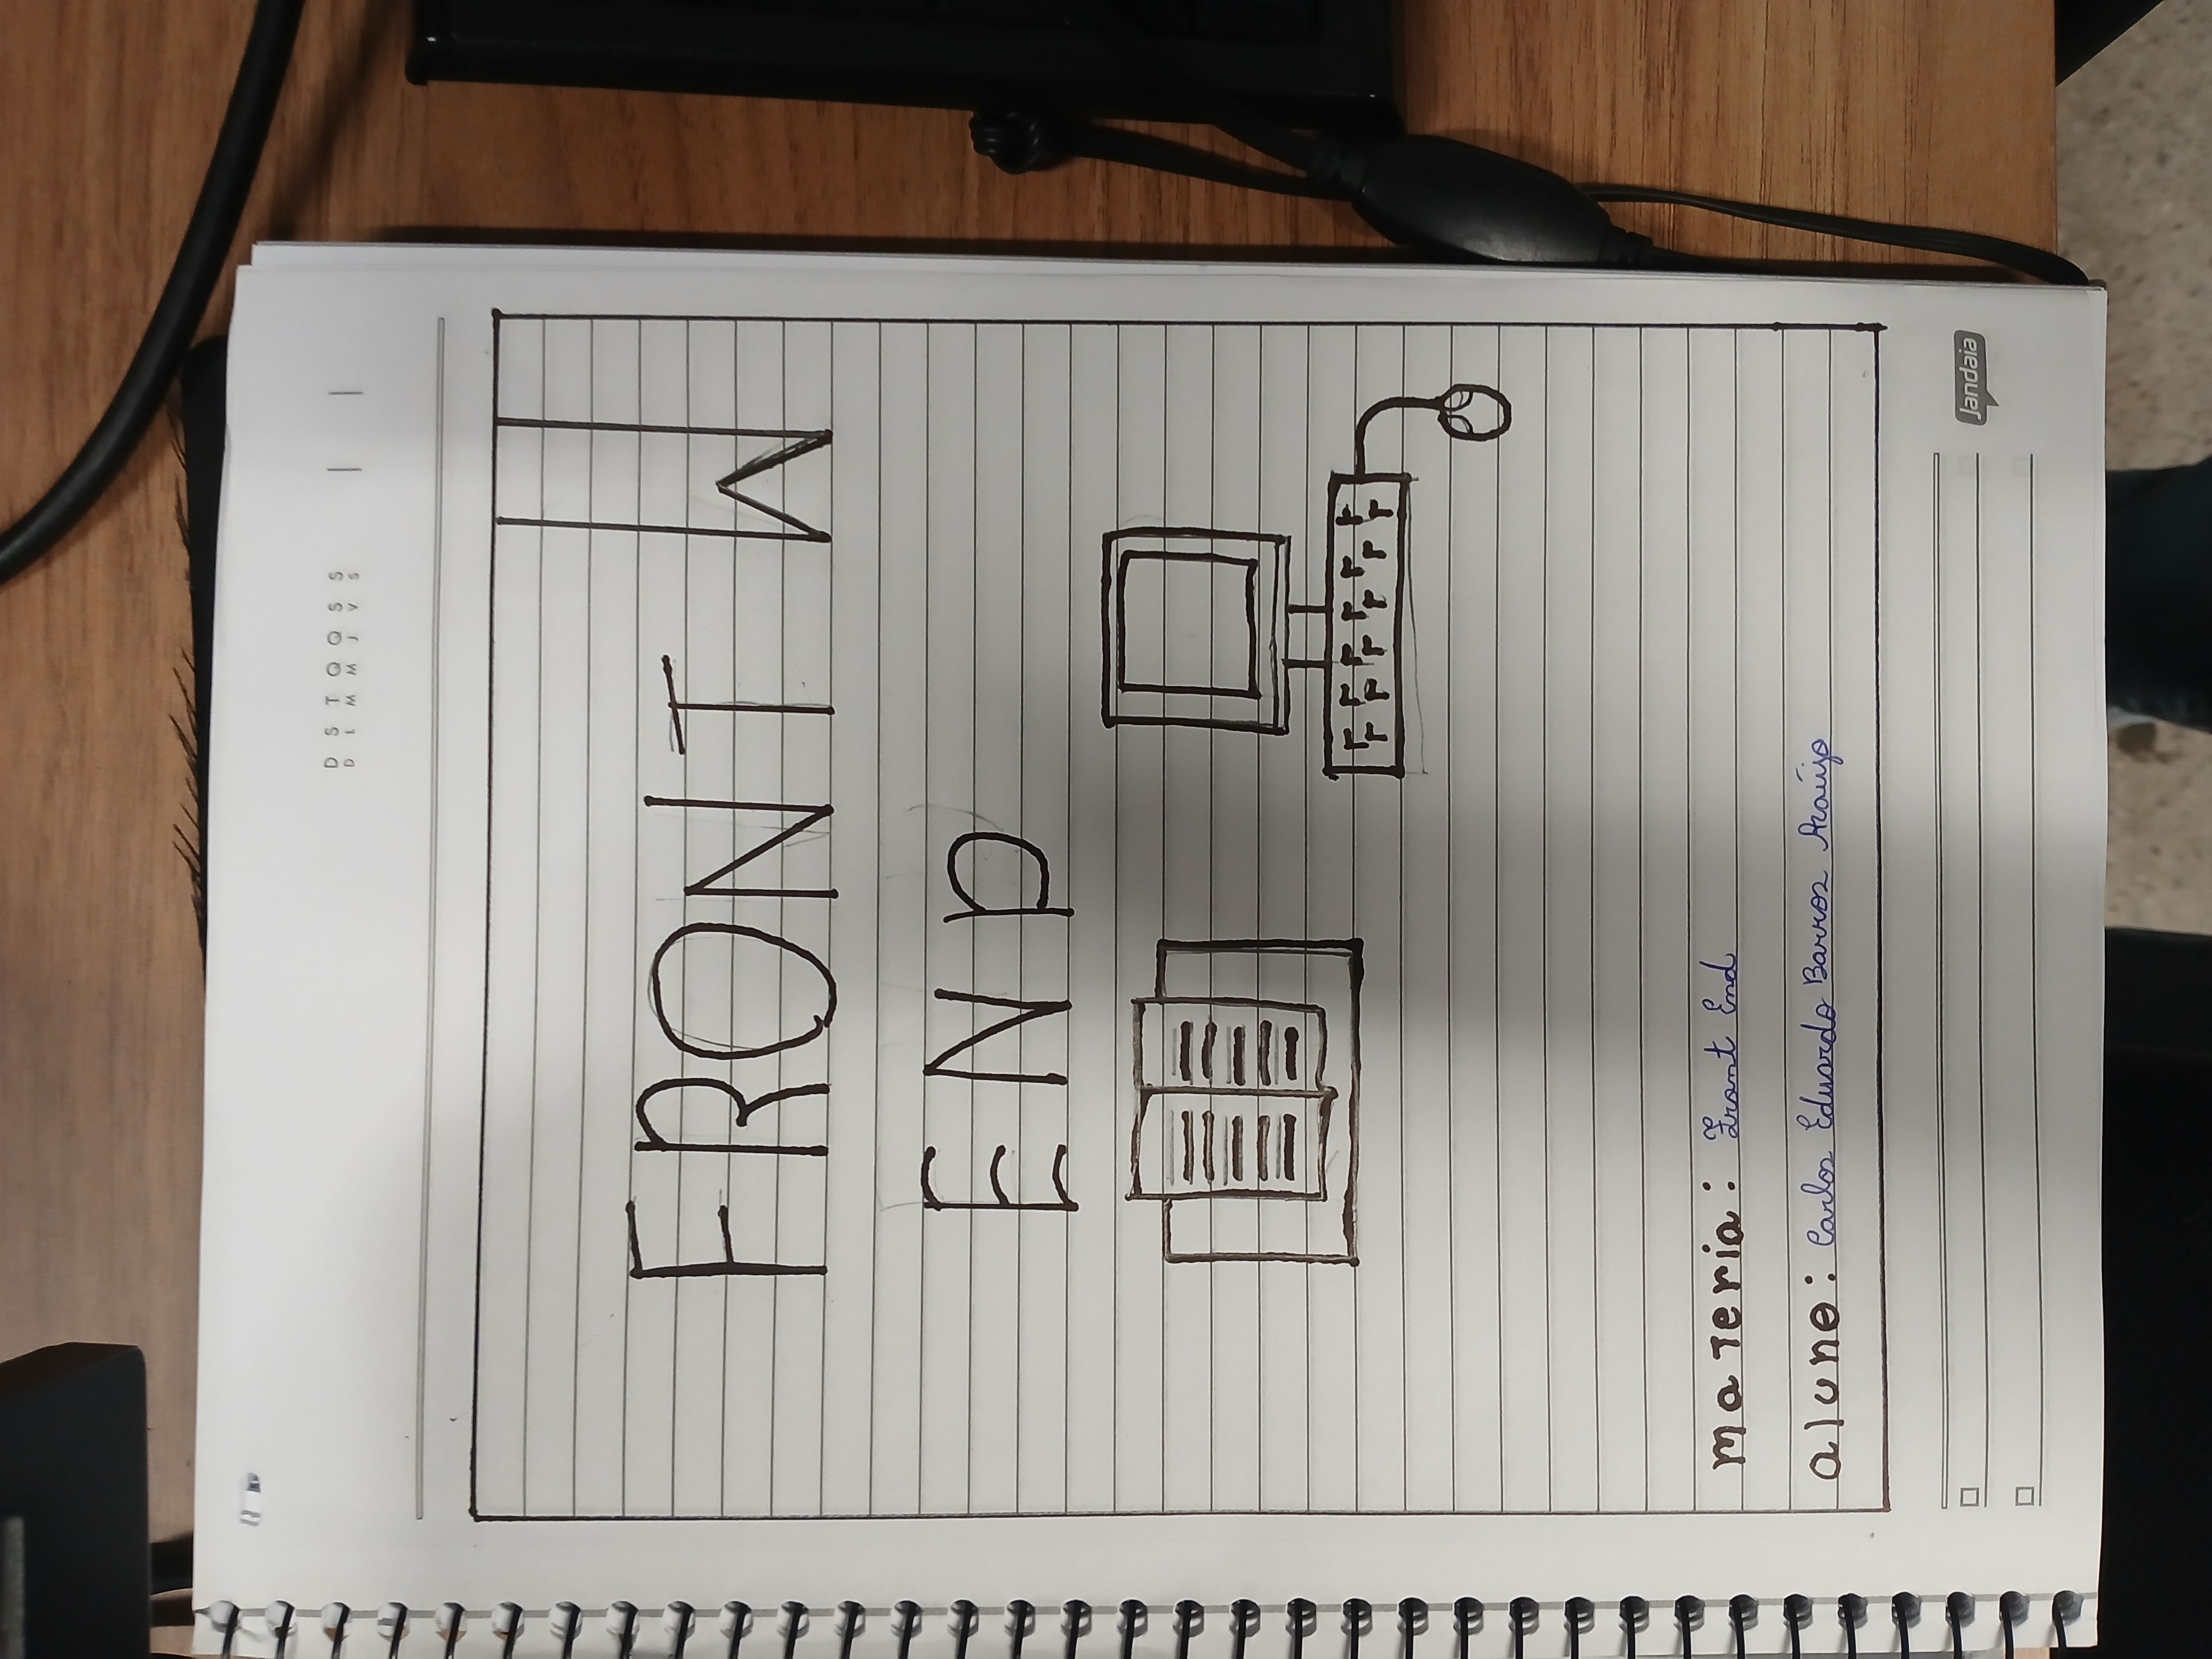 D S T Q Q S S
D L M M J V S
FRONT
END
materia: Front End
aluno: Carlos Eduardo Barros Araújo
Jandaia